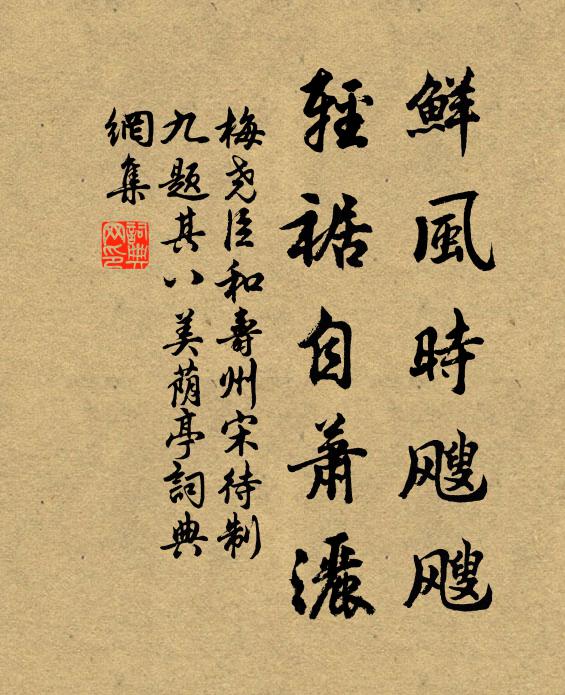 鮮風時颼颼
輕裾自蕭灑
梅堯臣和壽州宋待制
九題其八美蔭亭詞典
網集
詞典
网印